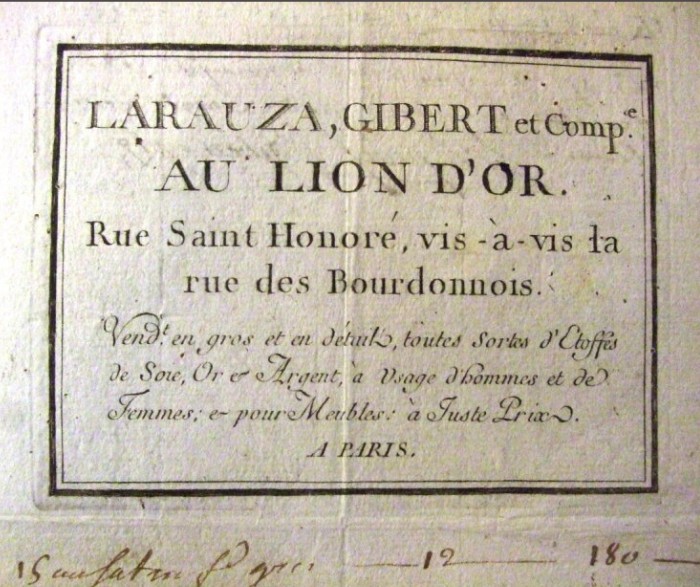 LARAUZA, GIBERT et Comp.e
AU LION D'OR.
Rue Saint Honoré, vis-à-vis la
rue des Bourdonnois.
Vend.t en gros et en détail, toutes sortes d'Etoffes
de Soie, Or & Argent, à Usage d'hommes et de
Femmes; & pour Meubles: à Juste Prix.
A PARIS.
15 12 180